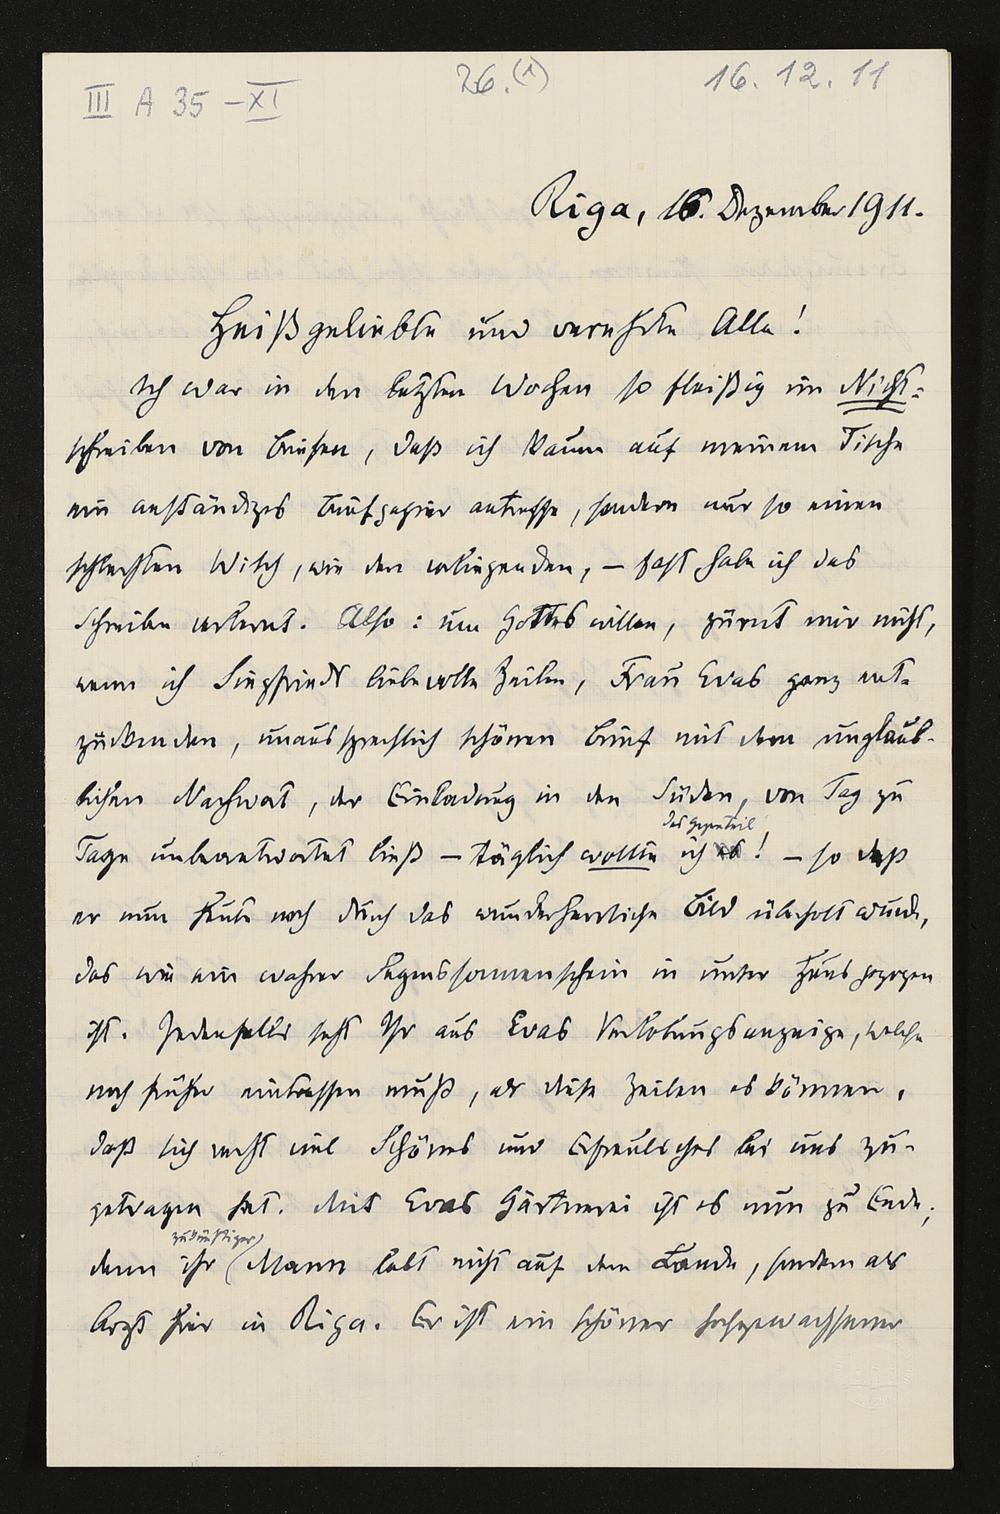 III A 35 – XI
26.(1)
16. 12. 11
Riga, 16. Dezember 1911.
Heißgeliebte und verehrte Alle!
Ich war in den letzten Wochen so fleißig im Nicht-
schreiben von Briefen, daß ich kaum auf meinem Tische
ein anständiges Briefpapier antreffe, sondern nur so einen
schlechten Wisch, wie den vorliegenden, – fast habe ich das
Schreiben verlernt. Also: um Gottes willen, zürnt mir nicht,
wenn ich Siegfrieds liebevolle Zeilen, Frau Evas ganz ent-
zückenden, unaussprechlich schönen Brief mit dem unglaub-
lichen Nachwort, der Einladung in den Süden, von Tag zu
das Gegenteil
Tage unbeantwortet ließ – täglich wollte ich ! – so daß
er nun heute noch durch das wunderherrliche Bild überholt wurde,
das wie ein wahrer Segenssonnenschein in unser Haus gezogen
ist. Jedenfalls seht Ihr aus Evas Verlobungsanzeige, welche
noch früher eintreffen muß, als diese Zeilen es können,
daß sich recht viel Schönes und Erfreuliches bei uns zu-
getragen hat. Mit Evas Gärtnerei ist es nun zu Ende;
zukünftiger
denn ihr (Mann lebt nicht auf dem Lande, sondern als
Arzt hier in Riga. Er ist ein schöner hochgewachsener